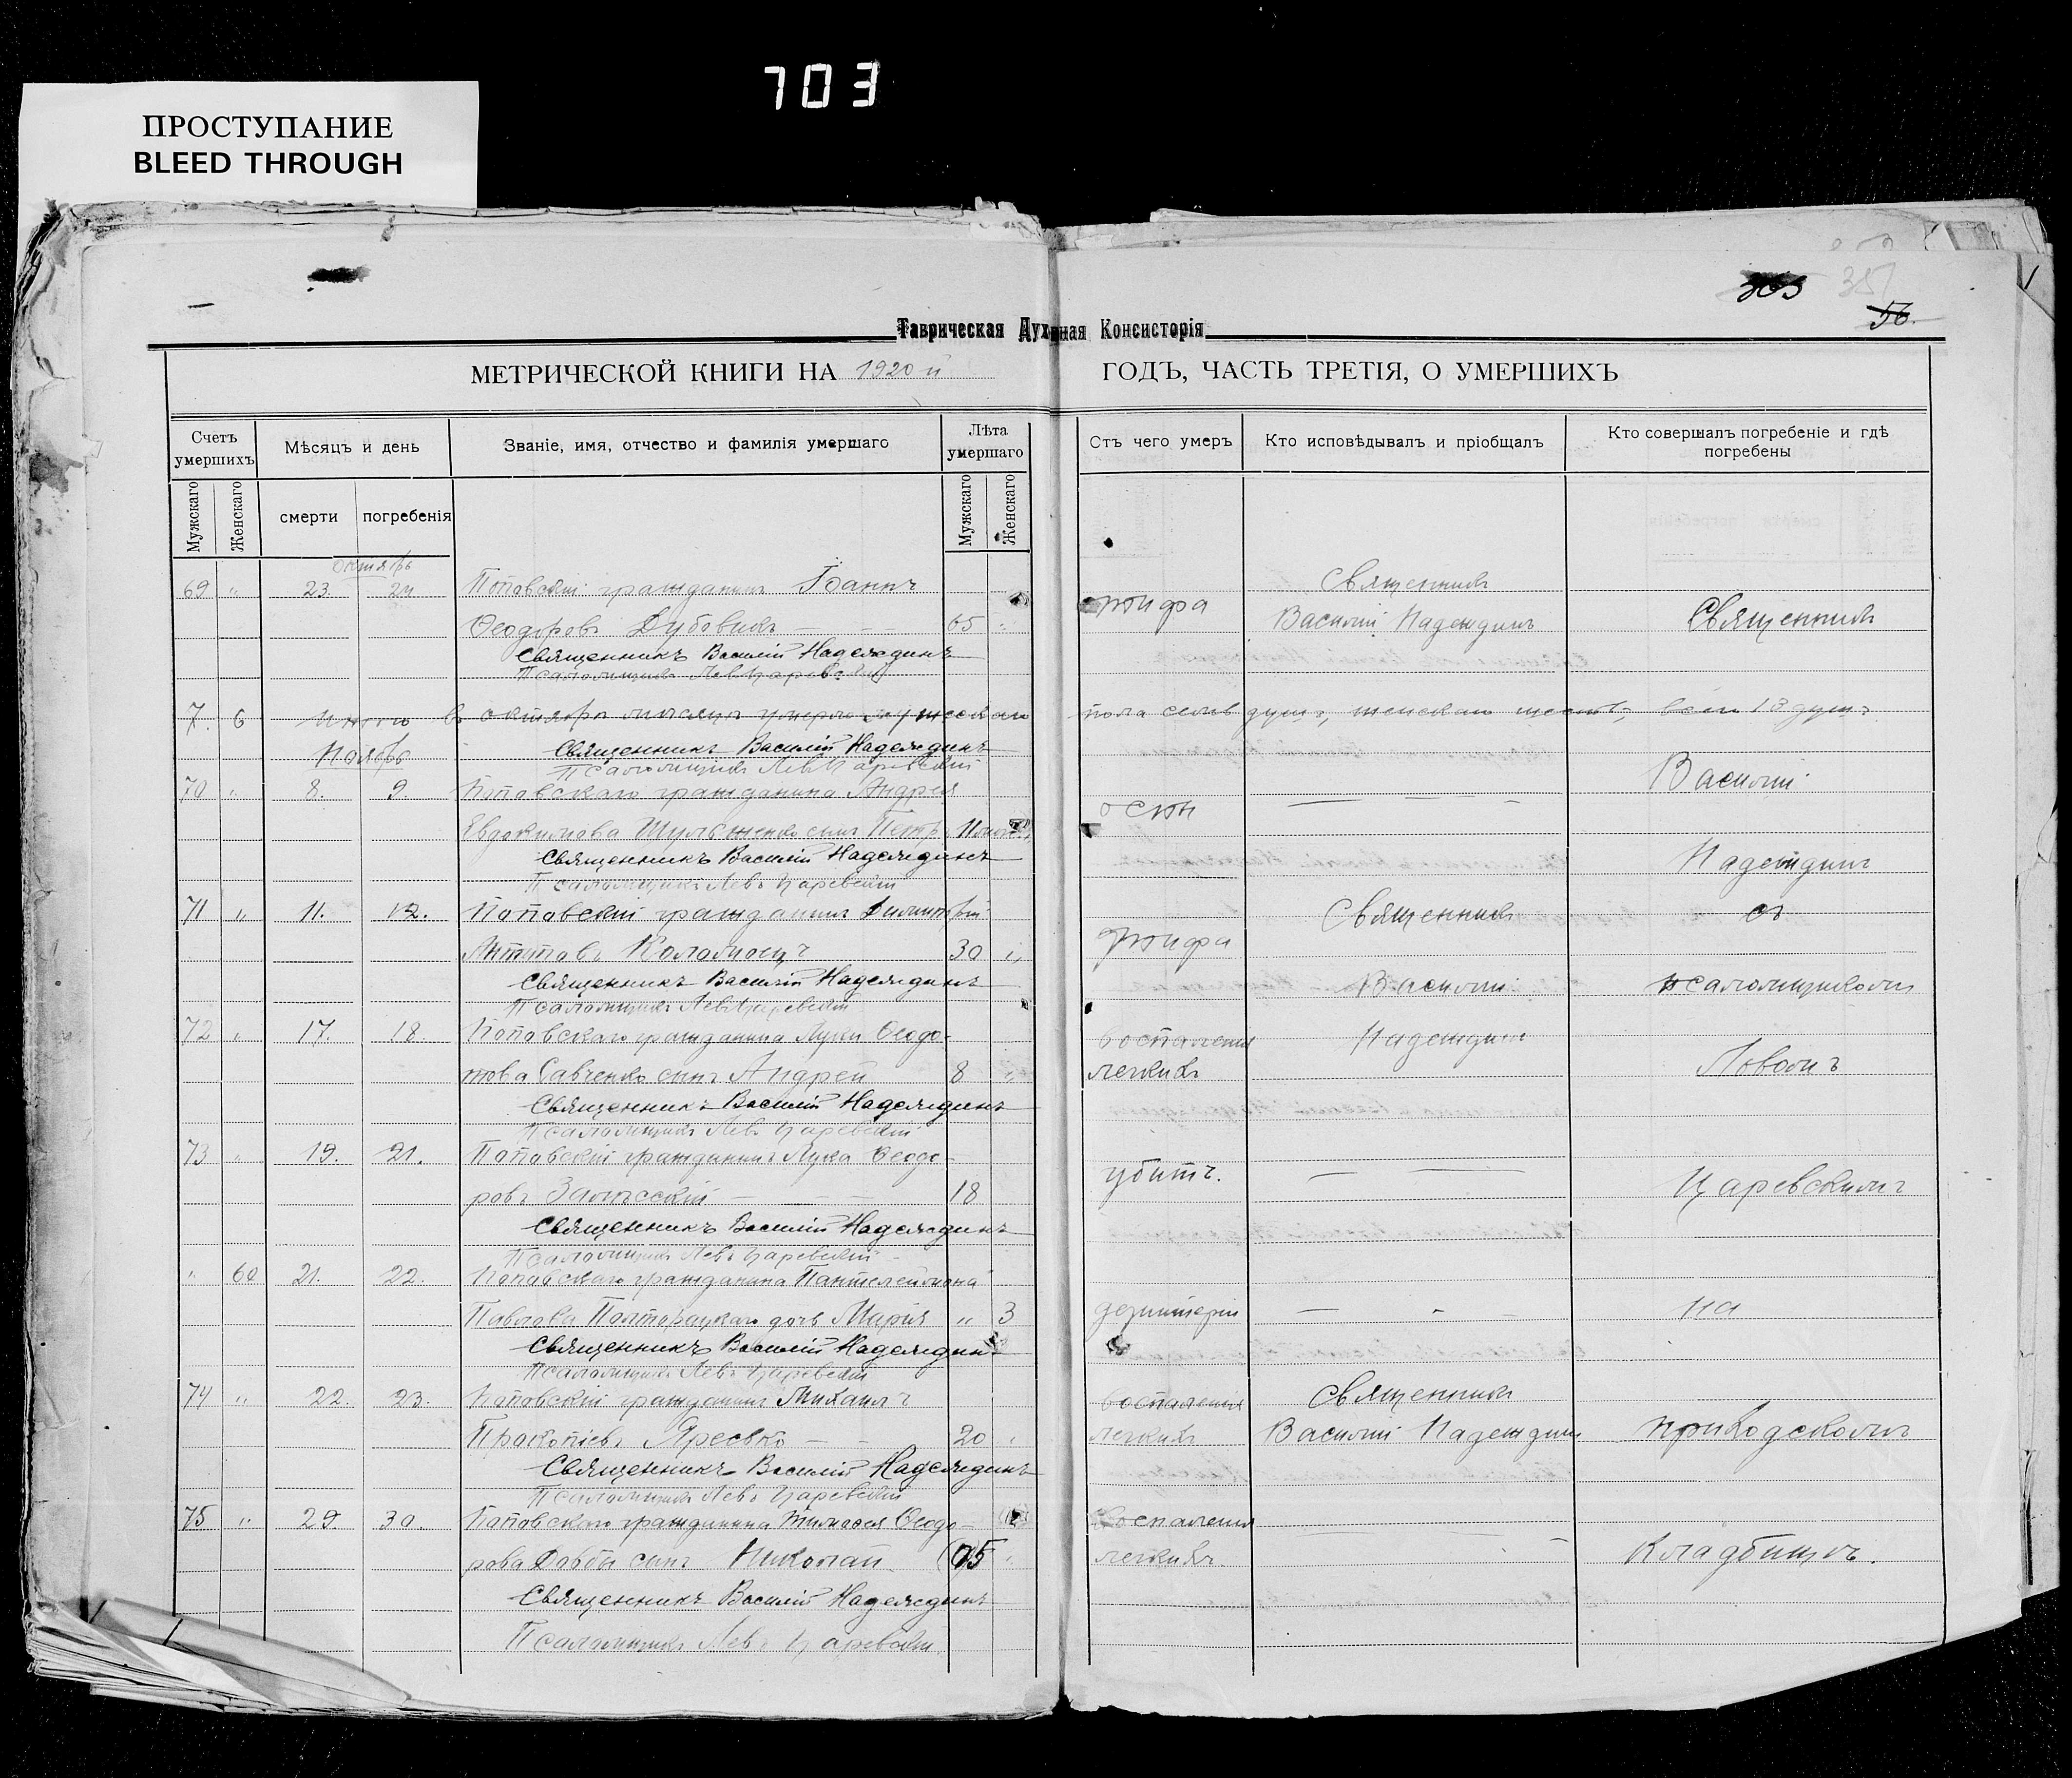 703
ПРОСТУПАНИЕ
BLEED THROUGH
363
351
56.
Таврическая Духовная Консисторія
МЕТРИЧЕСКОЙ КНИГИ НА 1920 й ГОДЪ, ЧАСТЬ ТРЕТІЯ, О УМЕРШИХЪ
Счетъ умершихъ
Мѣсяцъ и день
Званіе, имя, отчество и фамилія умершаго
Лѣта умершаго
Отъ чего умеръ
Кто исповѣдывалъ и пріобщалъ
Кто совершалъ погребеніе и гдѣ погребены
Мужскаго
Женскаго
смерти
погребенія
Мужскаго
Женскаго
Октябрь
69 " 23. 24 Поповскій гражданинъ Іоаннъ
Ѳеодоровъ Дубовикъ — — — 65 "
тифа
Священникъ
Василій Надеждинъ
Священникъ
Священникъ Василій Надеждинъ
Псаломщикъ Левъ Царевскій
7. 6 Итого въ октябрѣ мѣсяцѣ умерло мужескаго пола семь душъ, женскаго шесть, всего 13 душъ
Ноябрь
Священникъ Василій Надеждинъ
Псаломщикъ Левъ Царевскій
Василій
70 " 8. 9. Поповскаго гражданина Андрея
Евдокимова Шульженко сынъ Петръ
оспы
Священникъ Василій Надеждинъ
Псаломщикъ Левъ Царевскій
Надеждинъ
71 " 11. 12. Поповскій гражданинъ Димитрій
Антиповъ Коломоецъ 30 "
тифа
Священникъ
Василій
Надеждинъ
съ
Священникъ Василій Надеждинъ
Псаломщикъ Левъ Царевскій
псаломщикомъ
72 " 17. 18 Поповскаго гражданина Луки Ѳеодо-
това Савченко сынъ Андрей 8 "
воспаленія
легкихъ
Львомъ
Священникъ Василій Надеждинъ
Псаломщикъ Левъ Царевскій
73 " 19. 21. Поповскій гражданинъ Лука Ѳеодо-
ровъ Залѣсскій — — — 18
убитъ.
Царевскимъ
Священникъ Василій Надеждинъ
Псаломщикъ Левъ Царевскій
" 60 21. 22. Поповскаго гражданина Пантелеймона
Павлова Полторацкаго дочь Марія " 3
дезинтерія
на
Священникъ Василій Надеждинъ
Псаломщикъ Левъ Царевскій
74 " 22. 23. Поповскій гражданинъ Михаилъ
Прокопіевъ Яресько — — 20 "
воспаленія
легкихъ
Священникъ
Василій Надеждинъ
приходскомъ
Священникъ Василій Надеждинъ
Псаломщикъ Левъ Царевскій
75 " 29. 30. Поповскаго гражданина Тимоѳея Ѳеодо-
рова Довбы сынъ Николай
воспаленія
легкихъ
кладбищѣ.
Священникъ Василій Надеждинъ
Псаломщикъ Левъ Царевскій